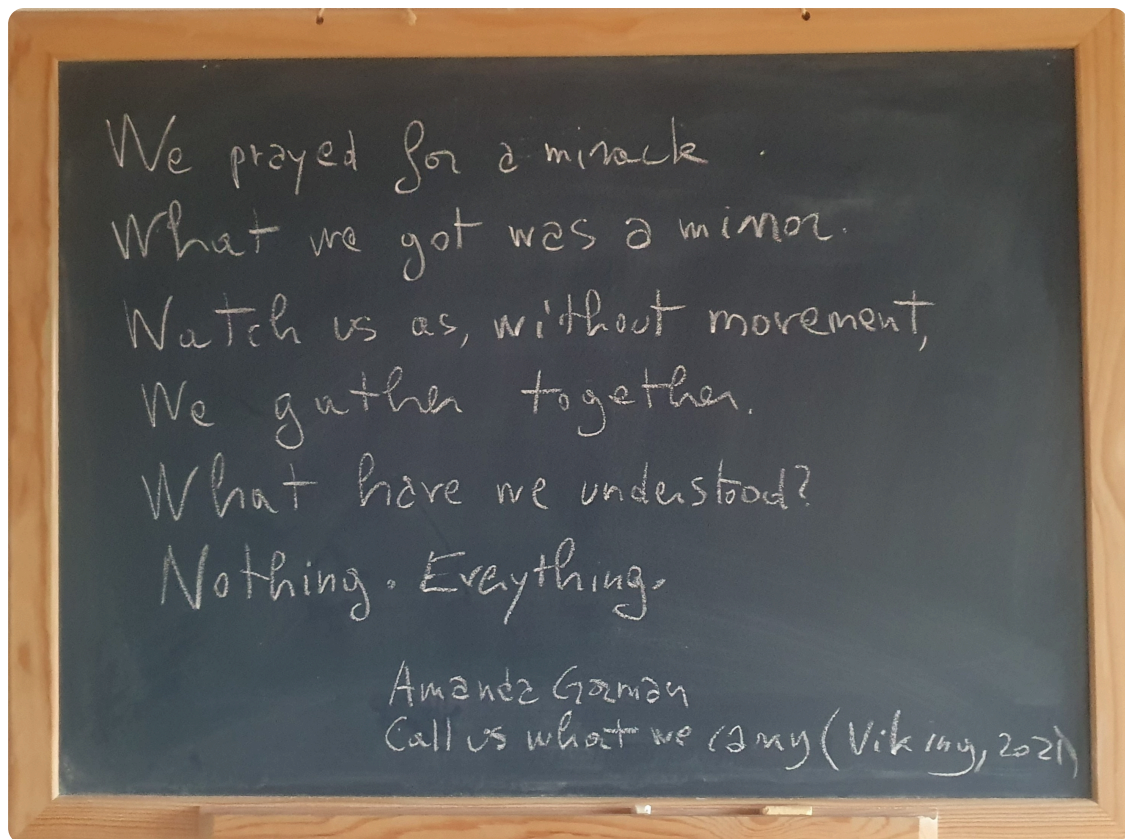 We prayed for a miracle.
What we got was a mirror.
Watch us as, without movement,
We gather together.
What have we understood?
Nothing. Everything.
Amanda Gorman
Call us what we carry (Viking, 2021)